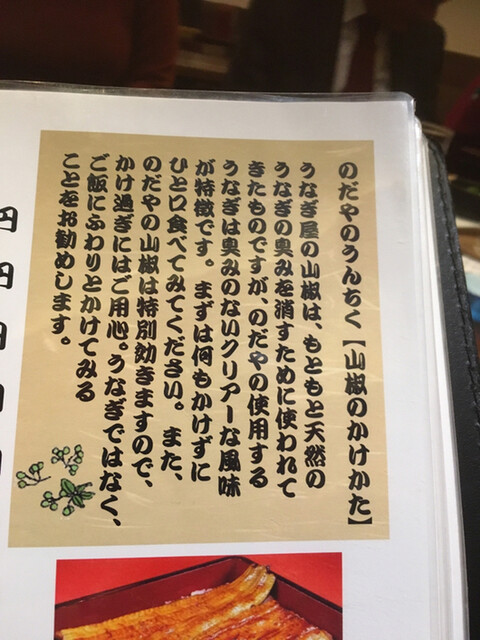 のだやのうんちく【山椒のかけかた】
うなぎ屋の山椒は、もともと天然の
うなぎの臭みを消すために使われて
きたものですが、のだやの使用する
うなぎは臭みのないクリアーな風味
が特徴です。まずは何もかけずに
ひと口食べてみてください。また、
のだやの山椒は特別効きますので、
かけ過ぎにはご用心。うなぎではなく、
ご飯にふわりとかけてみる
ことをお勧めします。
円
円
円
円
円